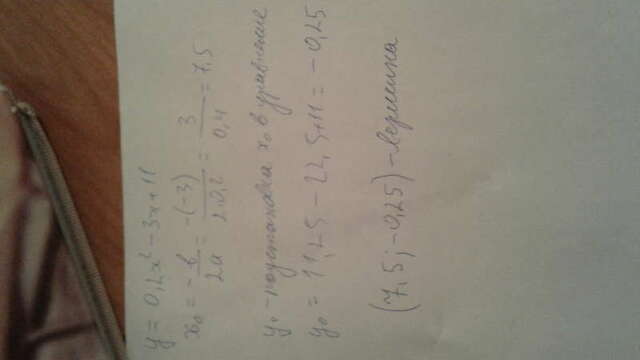 y = 0,2x² - 3x + 11
x₀ = -в/2a = -(-3)/2·0,2 = 3/0,4 = 7,5
y₀ - подстановка x₀ в уравнение
y₀ = 11,25 - 22,5 + 11 = -0,25.
(7,5; -0,25) - вершина